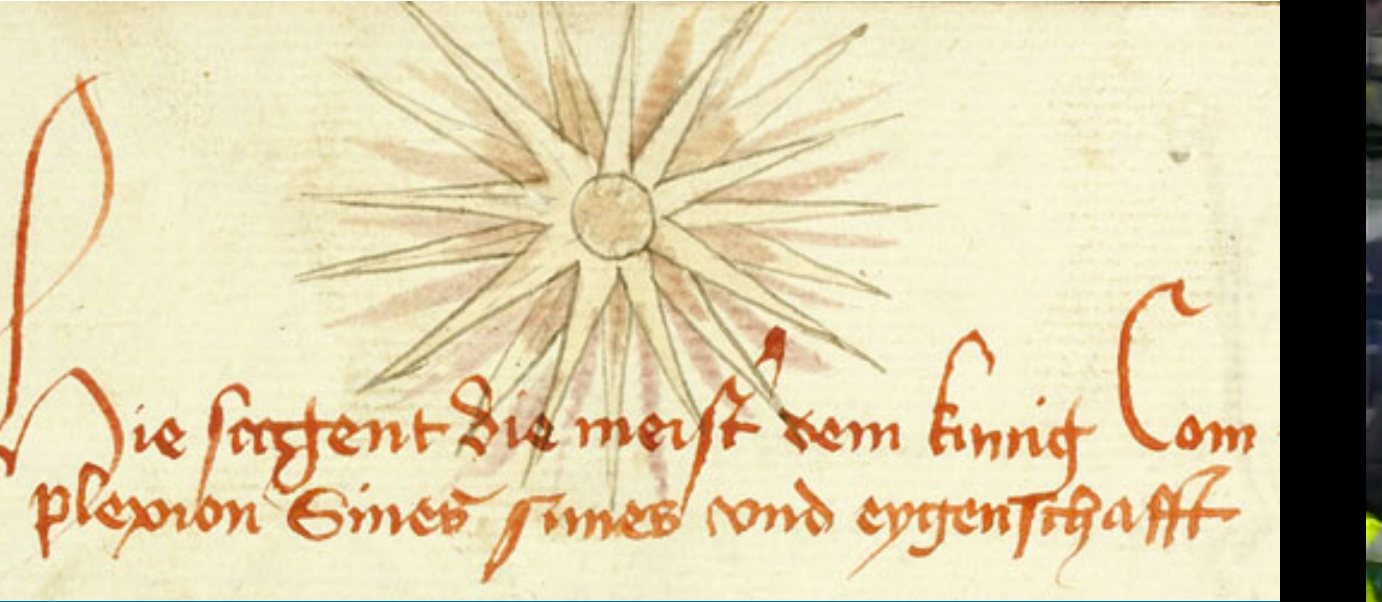 Hie sagent die meist dem kunig Com
plexion Sines sunes vnd eygenschafft